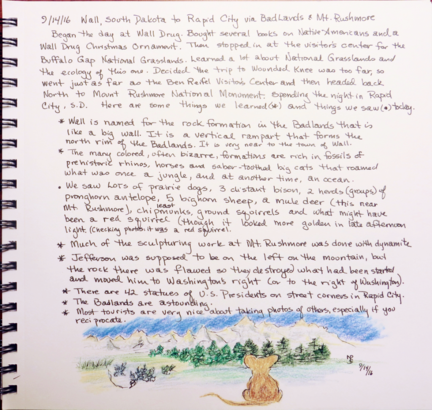 9/14/16 Wall, South Dakota to Rapid City via Badlands & Mt. Rushmore
Began the day at Wall Drug. Bought several books on Native Americans and a
Wall Drug Christmas Ornament. Then stopped in at the visitor's center for the
Buffalo Gap National Grasslands. Learned a lot about National Grasslands and
the ecology of this one. Decided the trip to Wounded Knee was too far, so
went just as far as the Ben Reifel Visitor's Center and then headed back
North to Mount Rushmore National Monument. Spending the night in Rapid
City, S.D. Here are some things we learned(*) and things we saw(•) today.
* Well is named for the rock formation in the Badlands that is
like a big wall. It is a vertical rampart that forms the
north rim of the Badlands. It is very near to the town of Wall.
* The many colored, often bizarre, formations are rich in fossils of
prehistoric rhinos, horses and saber-toothed big cats that roamed
what was once a jungle, and at another time, an ocean.
• We saw lots of prairie dogs, 3 distant bison, 2 herds (groups) of
pronghorn antelope, 5 bighorn sheep, a mule deer (this near
Mt. Rushmore), least chipmunks, ground squirrels and what might have
been a red squirrel (though it looked more golden in late afternoon
light (checking photo: it was a red squirrel.
* Much of the sculpturing work at Mt. Rushmore was done with dynamite
* Jefferson was supposed to be on the left on the mountain, but
the rock there was flawed so they destroyed what had been started
and moved him to Washington's right (or to the right of Washington).
* There are 42 statues of U.S. Presidents on street corners in Rapid City.
* The Badlands are astounding.
* Most tourists are very nice about taking photos of others, especially if you
reciprocate.
9/14/16